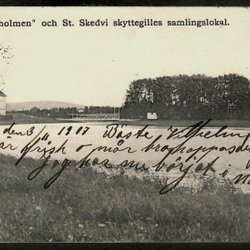 holmen" och St. Skedvi skyttegilles samlingslokal.
den 3/4 1907 Bäste Vilhelm
är frisk o mår bra hoppas du
jag har nu börjat i